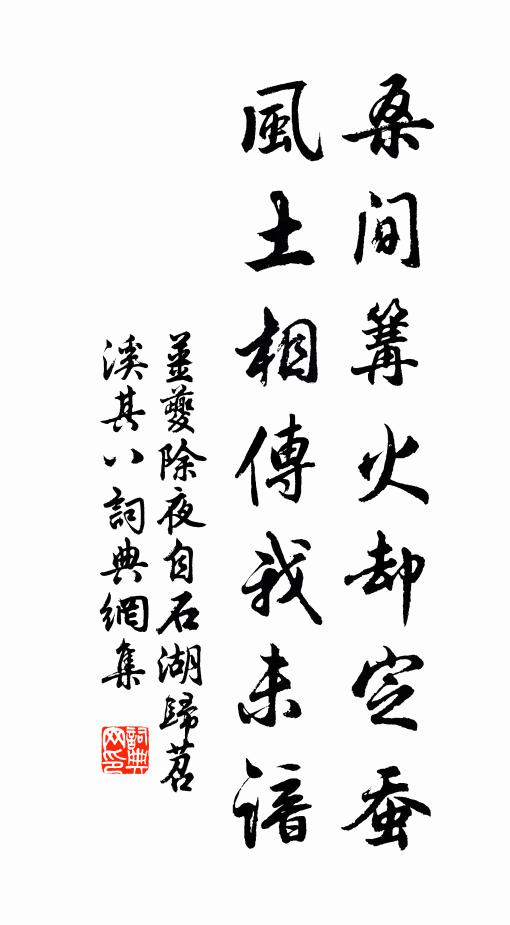 桑間篝火却定蚕
風土相傳我未諳
姜夔除夜自石湖歸苕
溪其八詞典網集
詞典網印